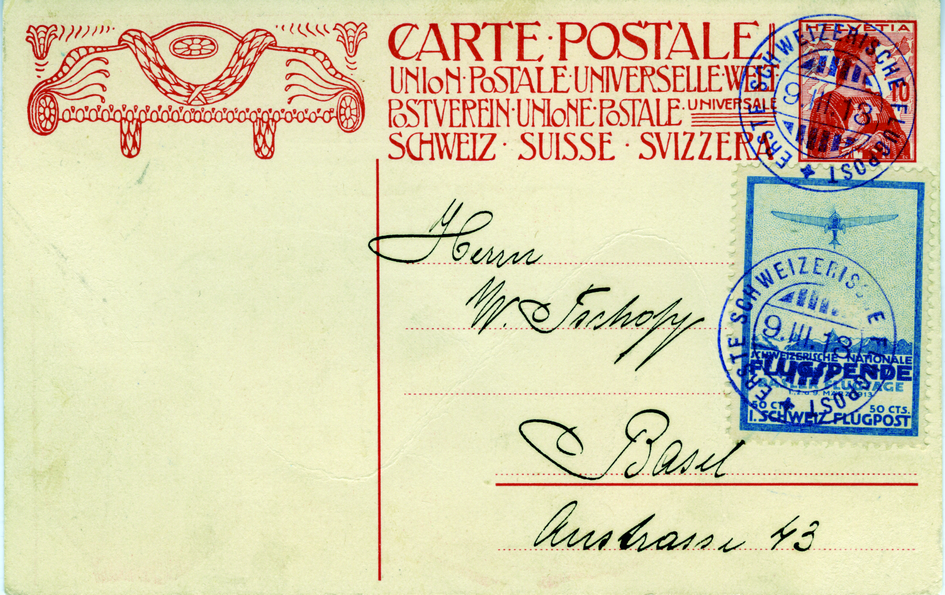 CARTE · POSTALE
UNION · POSTALE · UNIVERSELLE · WELT
POSTVEREIN · UNIONE · POSTALE · UNIVERSALE
SCHWEIZ · SUISSE · SVIZZERA
HELVETIA
10
ERSTE SCHWEIZERISCHE FLUGPOST
9.III.13
Herrn
W. Tschopp
Basel
Austrasse 43
ERSTE SCHWEIZERISCHE FLUGPOST
9.III.13
SCHWEIZERISCHE NATIONALE
FLUGSPENDE
50 CTS. 50 CTS.
I. SCHWEIZ. FLUGPOST